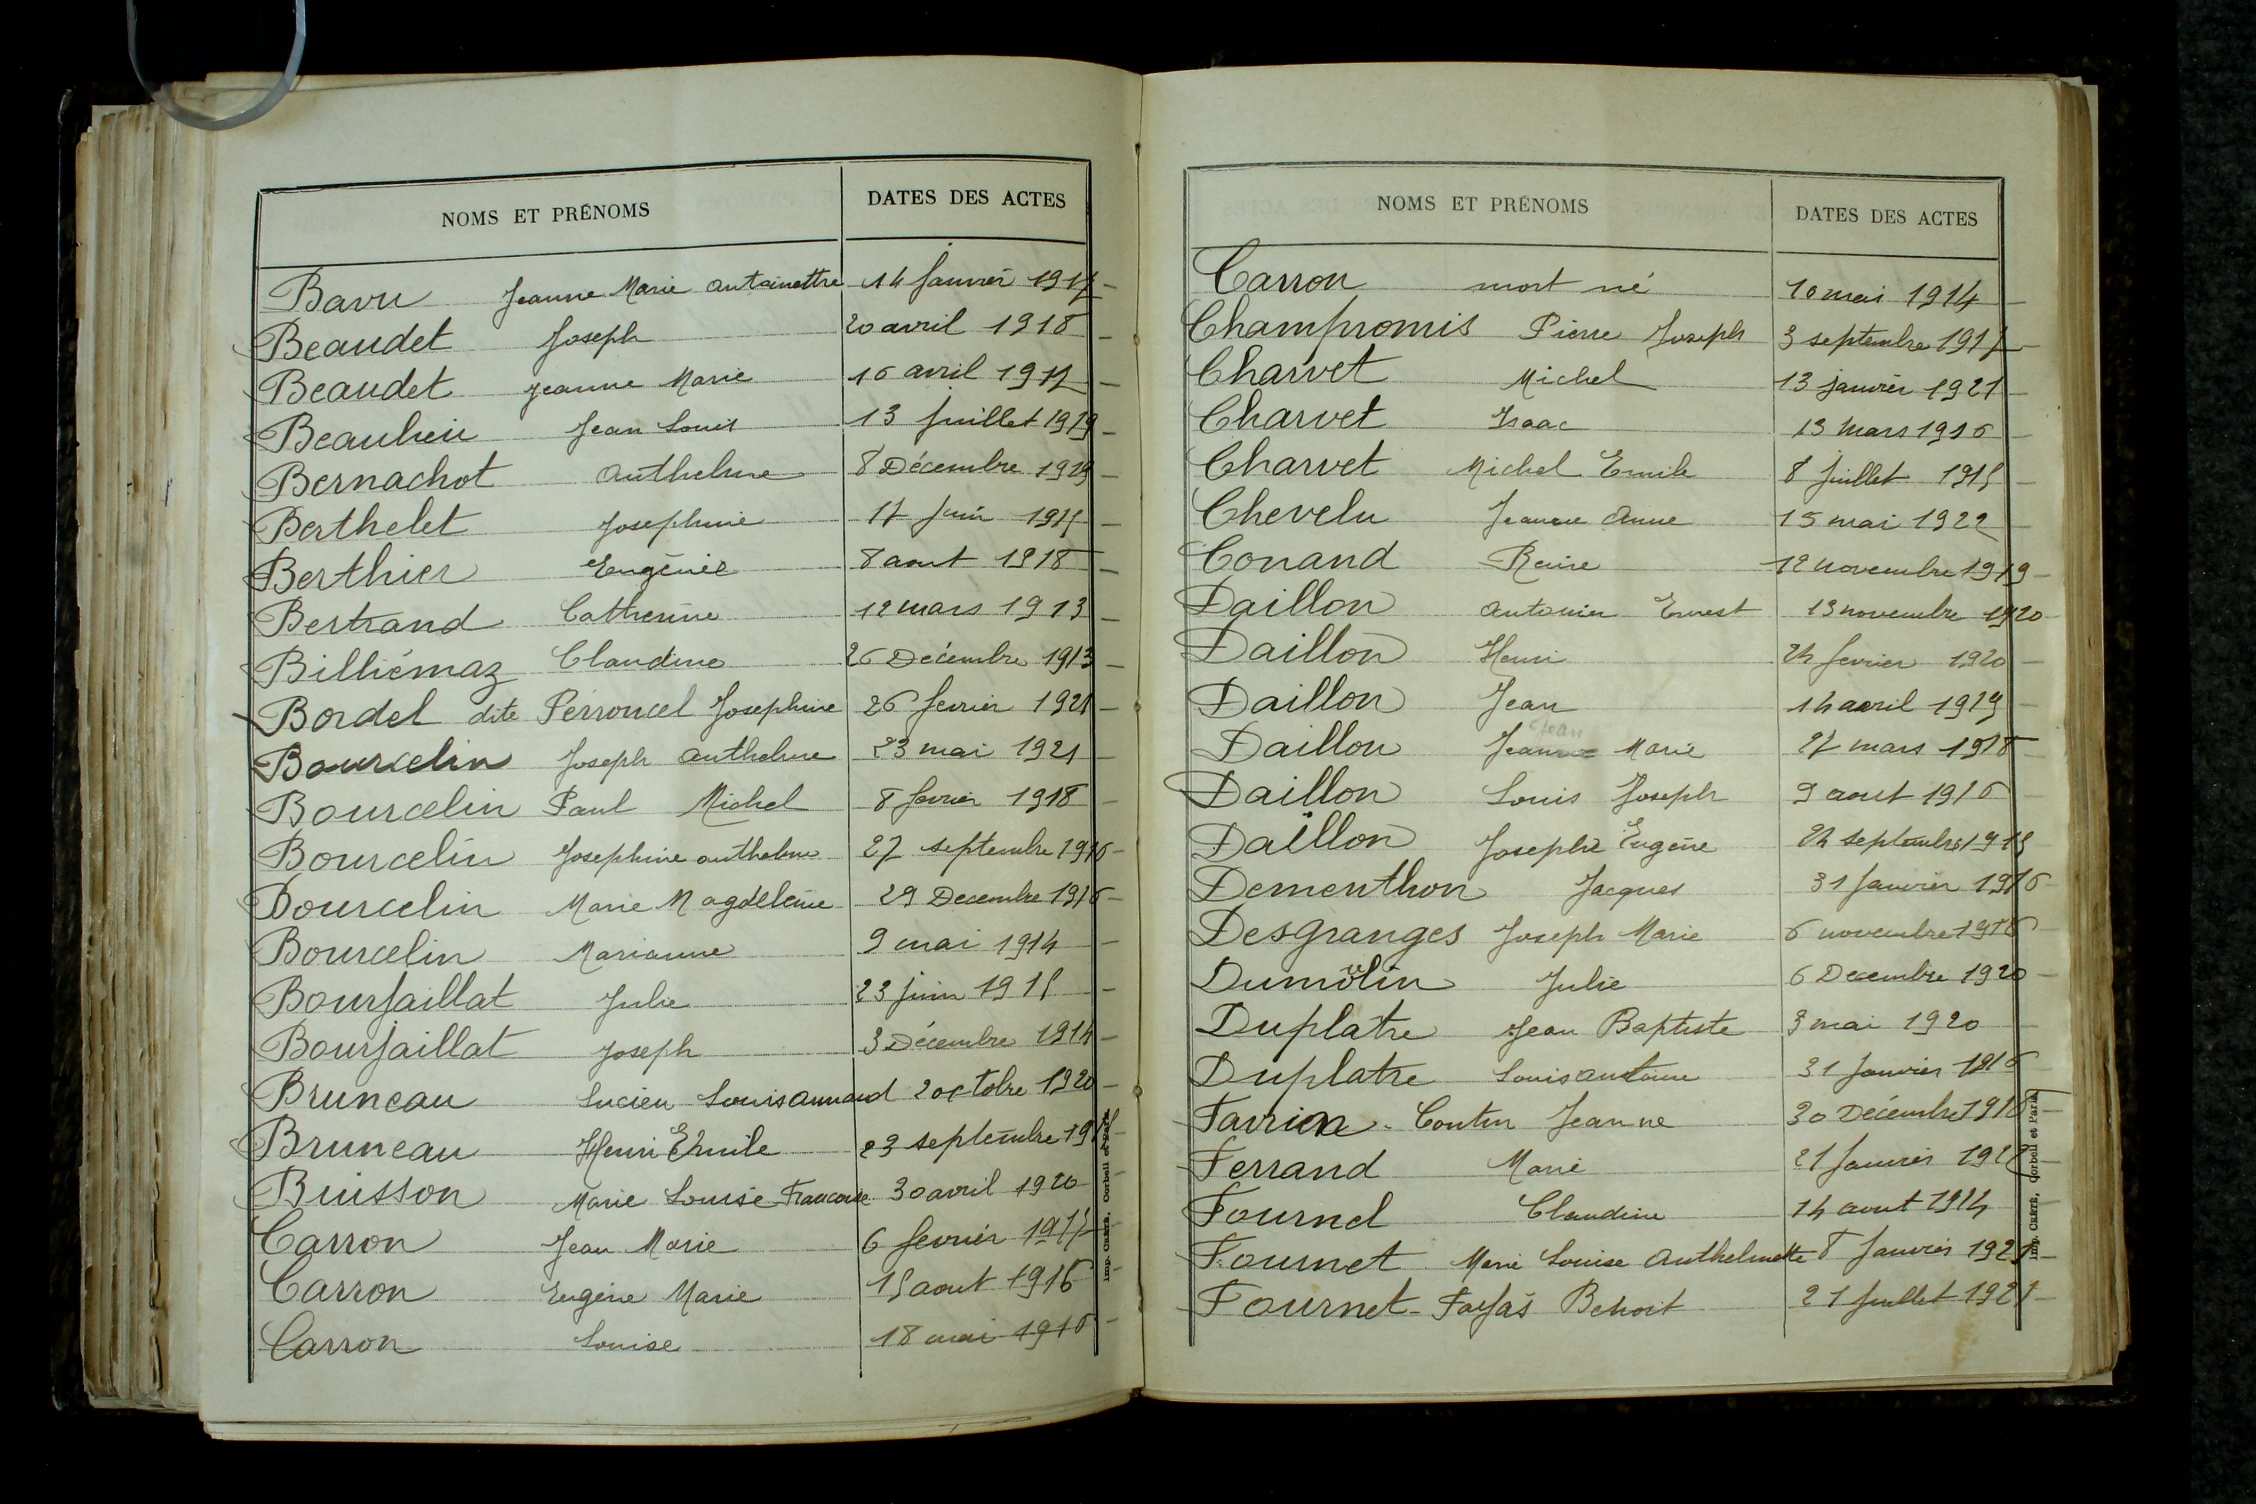 NOMS ET PRÉNOMS DATES DES ACTES
Bavu Jeanne Marie Antoinette 14 Janvier 1917
Beaudet Joseph 20 avril 1918
Beaudet Jeanne Marie 16 avril 1917
Beaulieu Jean Louis 13 Juillet 1919
Bernachot Anthelme 8 Décembre 1919
Berthelet Josephine 17 Juin 1915
Berthier Eugénie 8 aout 1918
Bertrand Catherine 12 mars 1913
Billiémaz Claudine 26 Décembre 1913
Bordel dite Perroncel Josephine 26 fevrier 1921
Bourcelin Joseph Anthelme 23 mai 1921
Bourcelin Paul Michel 8 fevrier 1918
Bourcelin Josephine anthelme 27 septembre 1916
Bourcelin Marie Magdeleine 29 Decembre 1916
Bourcelin Marianne 9 mai 1914
Bourjaillat Julie 23 juin 1915
Bourjaillat Joseph 3 Décembre 1914
Bruneau Lucien Louis Armand 2 octobre 1920
Bruneau Henri Emile 23 septembre
Buisson Marie Louise Francoise 30 avril 1920
Carron Jean Marie 6 fevrier 1917
Carron Eugène Marie 15 aout 1916
Carron Louise 18 mai 1916
Imp. Crété, Corbeil et Paris
NOMS ET PRÉNOMS DATES DES ACTES
Carron mort né 10 mai 1914
Champromis Pierre Joseph 3 septembre 1917
Charvet Michel 13 janvier 1921
Charvet Isaac 13 mars 1916
Charvet Michel Emile 8 Juillet 1915
Chevelu Jeanne Anne 15 mai 1922
Conand Reine 12 novembre 1919
Daillon Antonin Ernest 13 novembre 1920
Daillon Henri 24 fevrier 1920
Daillon Jean 14 avril 1919
Daillon Jean Marie 27 mars 1918
Daillon Louis Joseph 9 aout 1916
Daillon Joseph Eugène 24 septembre
Dementhon Jacques 31 Janvier 1916
Desgranges Joseph Marie 6 novembre 1916
Dumolin Julie 6 Decembre 1920
Duplatre Jean Baptiste 3 mai 1920
Duplatre Louis Antoine 31 Janvier 1916
Favrin - Contin Jeanne 30 Décembre 1918
Ferrand Marie 21 Janvier
Fournel Claudine 14 aout 1914
Fournet Marie Louise Anthelmette 8 Janvier 1921
Fournet-Fayas Benoit 21 Juillet 1921
Imp. Crété, Corbeil et Paris